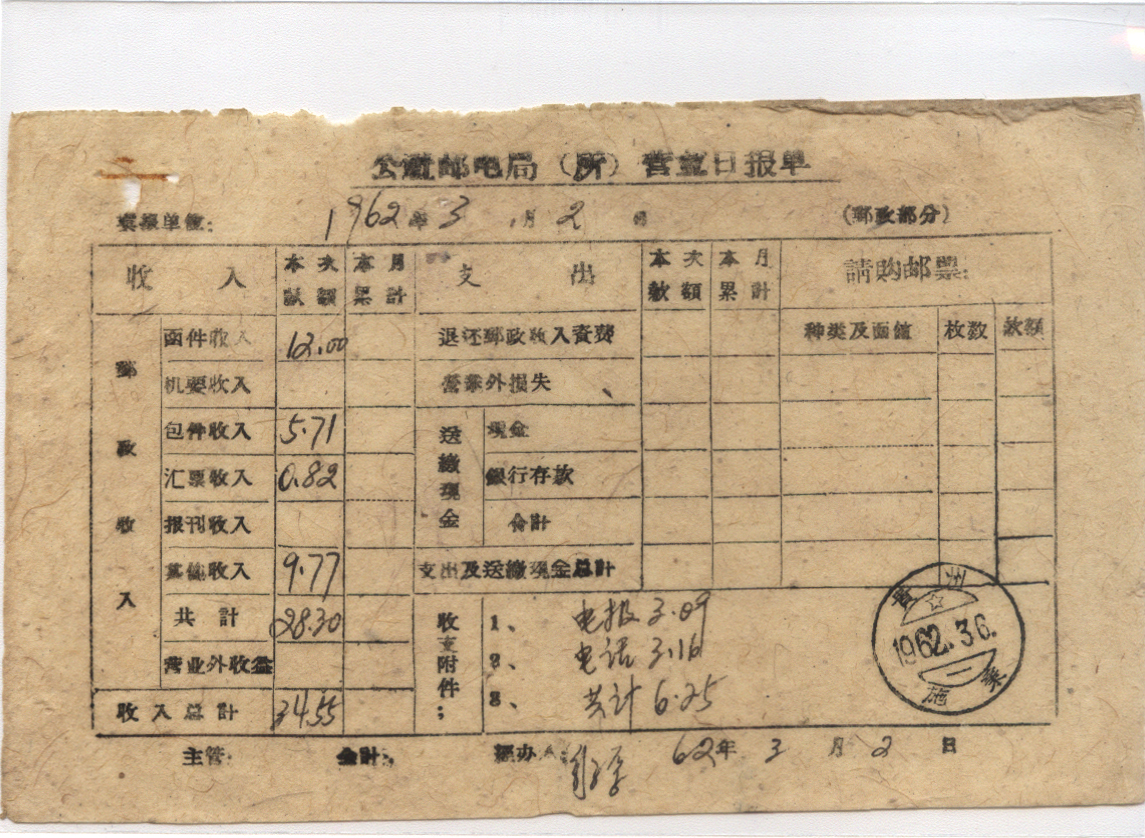 公 邮电局（所）营业日报单
填报单位： 1962年3月2日 （郵政部分）
收入 本次款額 本月累計 支出 本次款額 本月累計 請购邮票：
郵政收入 函件收入 12.00 退还郵政收入資费 种类及面值 枚数 款額
机要收入 营業外损失
包件收入 5.71 送繳現金 現金
汇票收入 0.82 銀行存款
报刊收入 合計
其他收入 9.77 支出及送繳現金总計
共計 28.30 收支附件： 1、 电报 3.09
营业外收益 2、 电话 3.16
收入总計 34.55 3、 共计 6.25
贵州
1962.3.6.
施秉
主管： 会計： 經办 62年3月2日